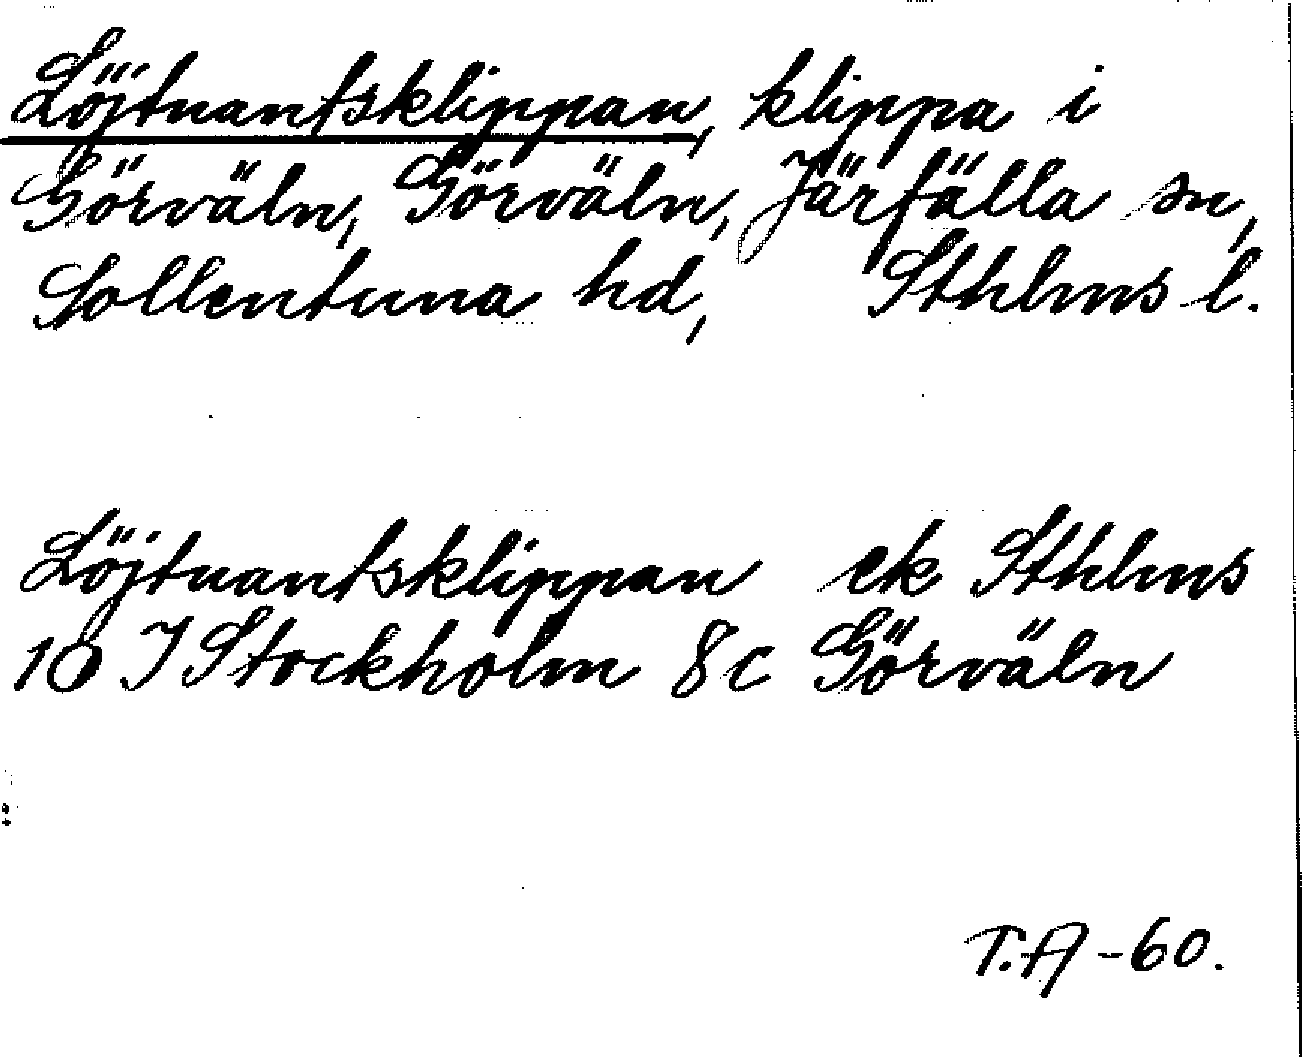 Löjtnantsklippan, klippa i
Görväln, Görväln, Järfälla sn,
Sollentuna hd, Sthlms l.
Löjtnantsklippan ek Sthlms
10 I Stockholm 8c Görväln
T.A -60.